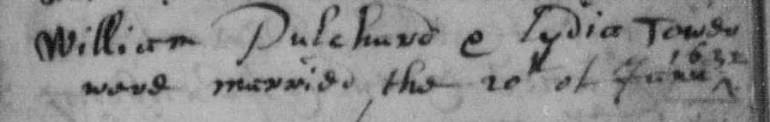 William Pulchard e Lydia Tower
were married the 20th of June 1632